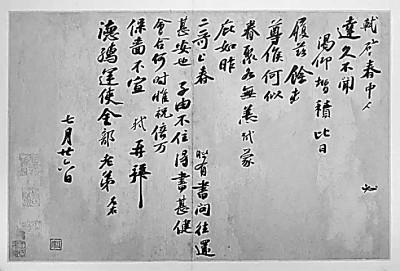 軾啓春中
達久不聞
渴仰增積比日
履茲餘熱
尊候何似
眷聚各無恙軾蒙
庇如昨
二哥上春 時有書問往還
甚安也 子由不住得書甚健
會合何時惟祝倍万
保嗇不宣 軾再拜
德孺運使金部老弟左右
七月廿六日